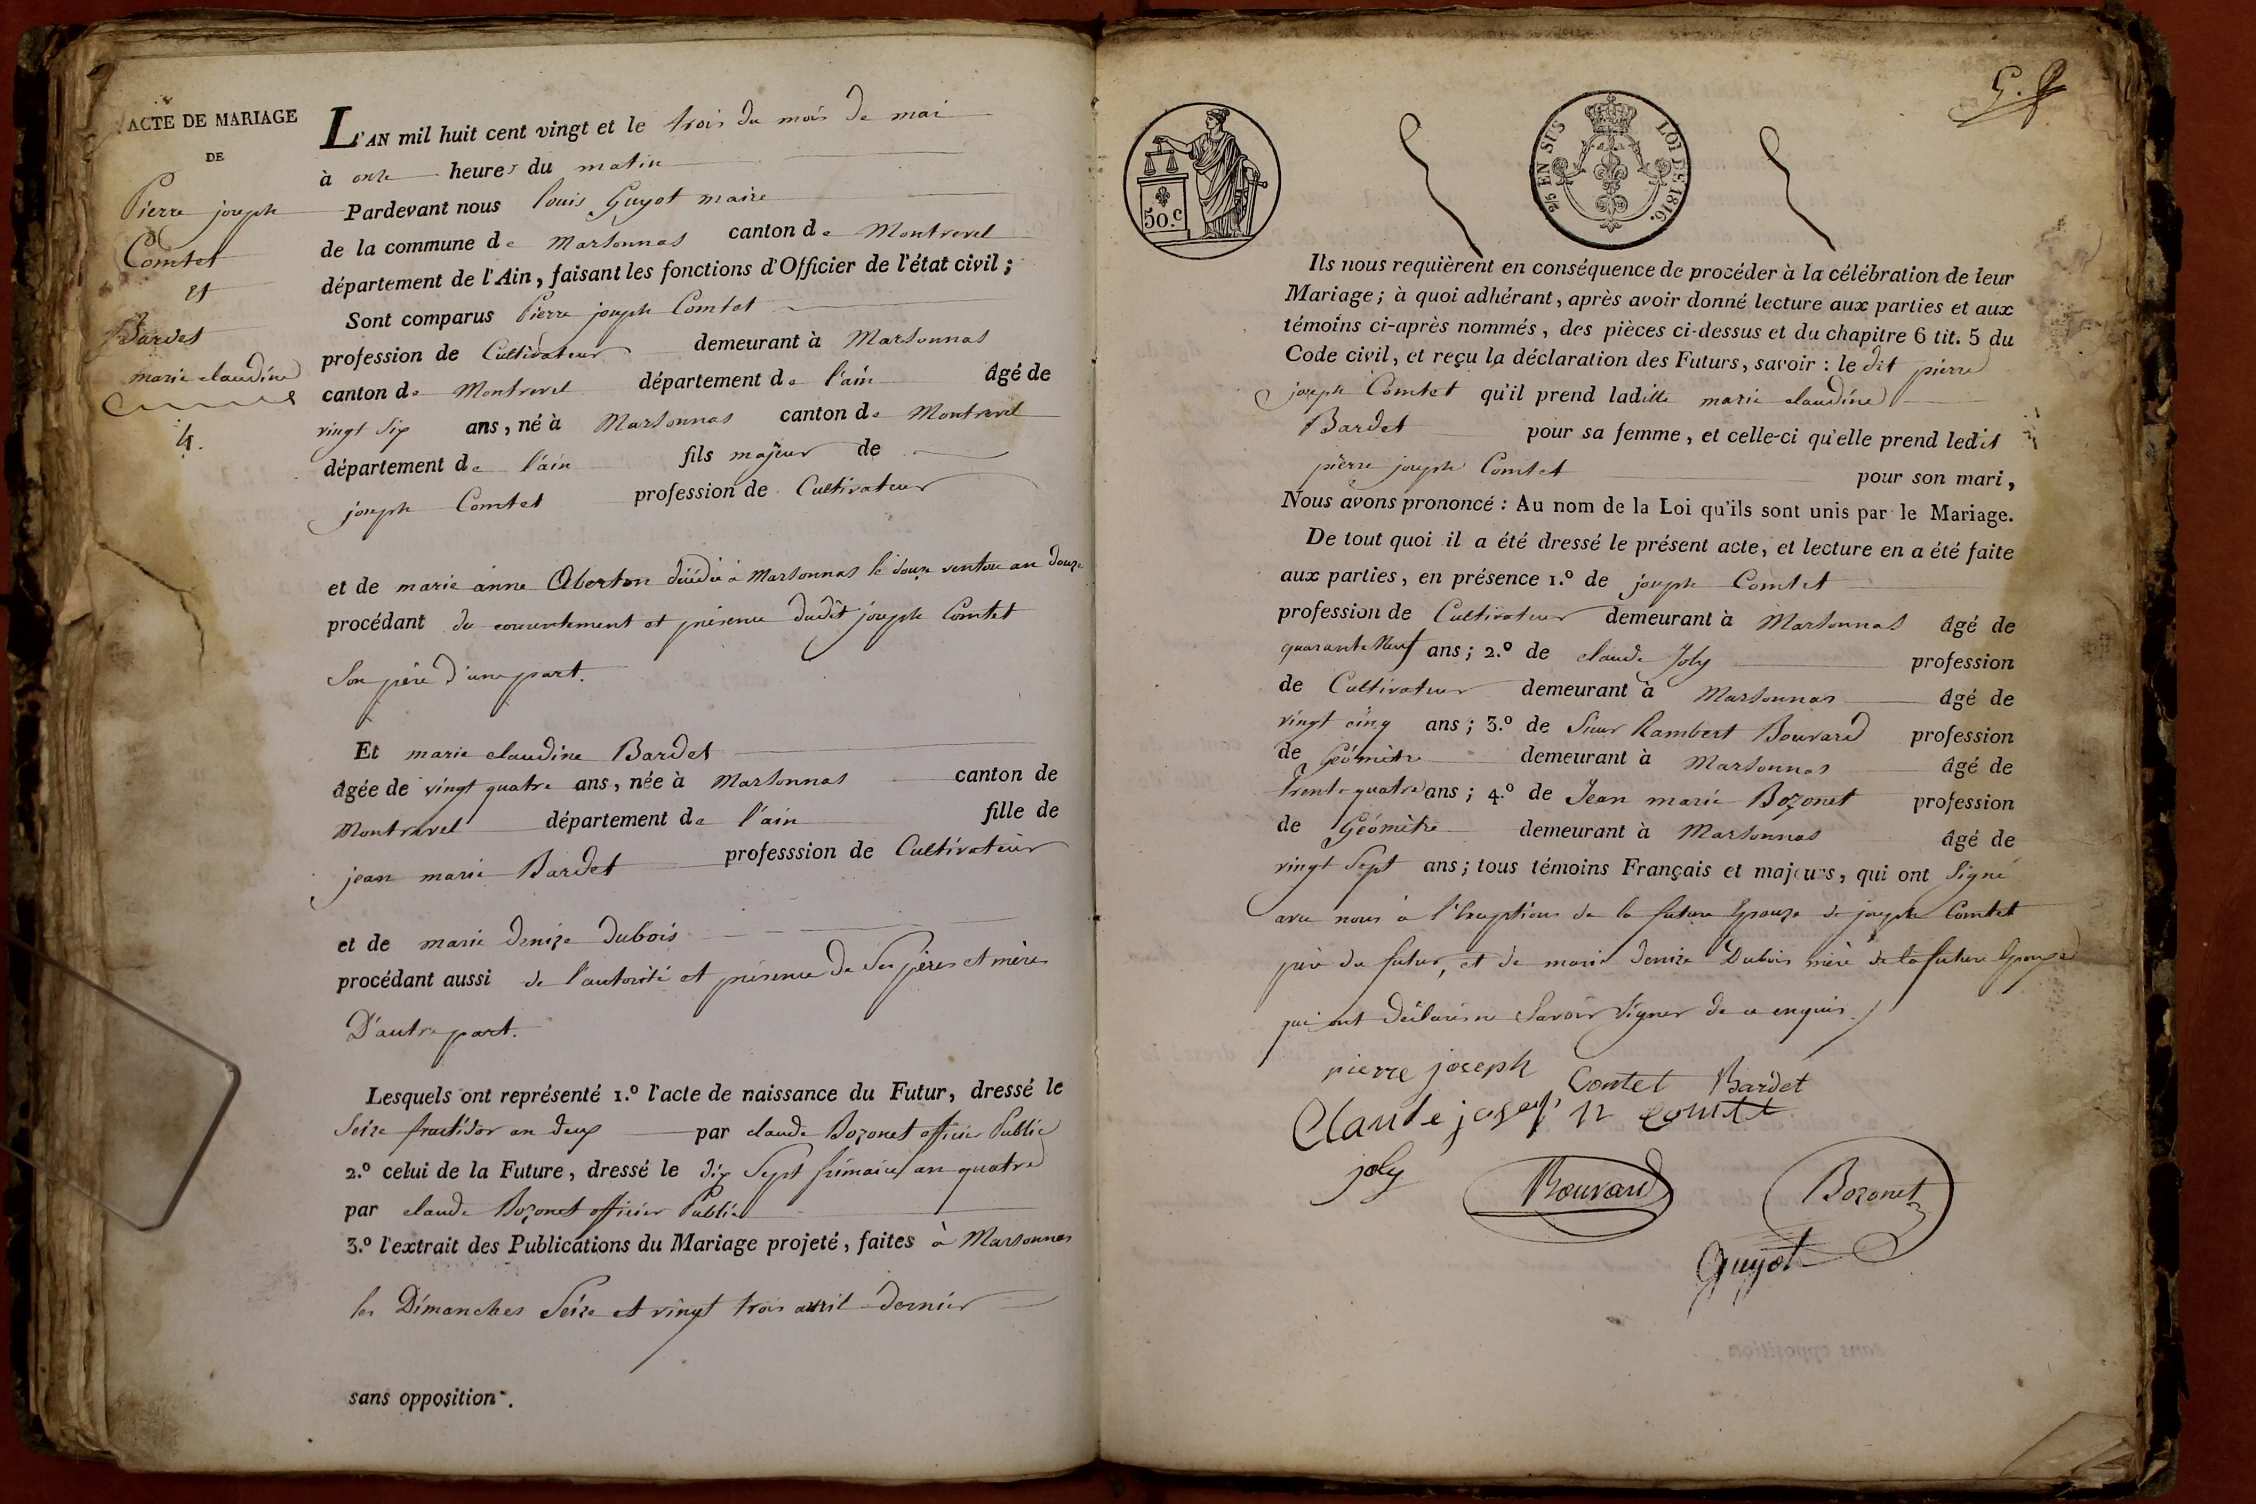 ACTE DE MARIAGE
DE
Pierre joseph
Comtet
et
Bardet
marie claudine
4.
L'AN mil huit cent vingt et le trois du mois de mai
à onze heures du matin
Pardevant nous louis Guyot maire
de la commune de Marsonnas canton de Montrevel
département de l'Ain, faisant les fonctions d'Officier de l'état civil;
Sont comparus Pierre joseph Comtet
profession de Cultivateur demeurant à Marsonnas
canton de Montrevel département de l'ain âgé de
vingt six ans, né à Marsonnas canton de Montrevel
département de l'ain fils majeur de
joseph Comtet profession de Cultivateur
et de marie anne Oberton décédée à Marsonnas le douze ventose an douze
procédant du consentement et présence dudit joseph Comtet
Son père d'une part.
Et marie claudine Bardet
âgée de vingt quatre ans, née à Marsonnas canton de
Montrevel département de l'ain fille de
jean marie Bardet professsion de Cultivateur
et de marie denize dubois
procédant aussi de l'autorité et présence de Ses pères et mères
D'autre part.
Lesquels ont représenté 1.º l'acte de naissance du Futur, dressé le
Seize fructidor an deux par claude Bozonet officier Public
2.º celui de la Future, dressé le dix Sept frimaire an quatre
par claude Bozonet officier Public
3.º l'extrait des Publications du Mariage projeté, faites à Marsonnas
les Dimanches Seize et vingt trois avril dernier
sans opposition.
50.c
25 EN SUS LOI DE 1816.
G. J.
Ils nous requièrent en conséquence de procéder à la célébration de leur
Mariage; à quoi adhérant, après avoir donné lecture aux parties et aux
témoins ci-après nommés, des pièces ci-dessus et du chapitre 6 tit. 5 du
Code civil, et reçu la déclaration des Futurs, savoir: le dit pierre
joseph Comtet qu'il prend ladille marie claudine
Bardet pour sa femme, et celle-ci qu'elle prend ledit
pierre joseph Comtet pour son mari,
Nous avons prononcé: Au nom de la Loi qu'ils sont unis par le Mariage.
De tout quoi il a été dressé le présent acte, et lecture en a été faite
aux parties, en présence 1.º de joseph Comtet
profession de Cultivateur demeurant à Marsonnas âgé de
quarante Neuf ans; 2.º de claude Joly profession
de Cultivateur demeurant à Marsonnas âgé de
vingt cinq ans; 3.º de Sieur Rambert Bouvard profession
de Géomètre demeurant à Marsonnas âgé de
trente quatre ans; 4.º de Jean marie Bozonet profession
de Géomètre demeurant à Marsonnas âgé de
vingt Sept ans; tous témoins Français et majeurs, qui ont Signé
avec nous à l'Exception de la future Epouze de joseph Comtet
père du futur, et de marie denize Dubois mère de la future Epouze
qui ont déclaré ne Savoir Signer de ce enquis
pierre joseph Comtet Bardet
Claude joseph Comtet
joly Bouvard Bozonet
Guyot